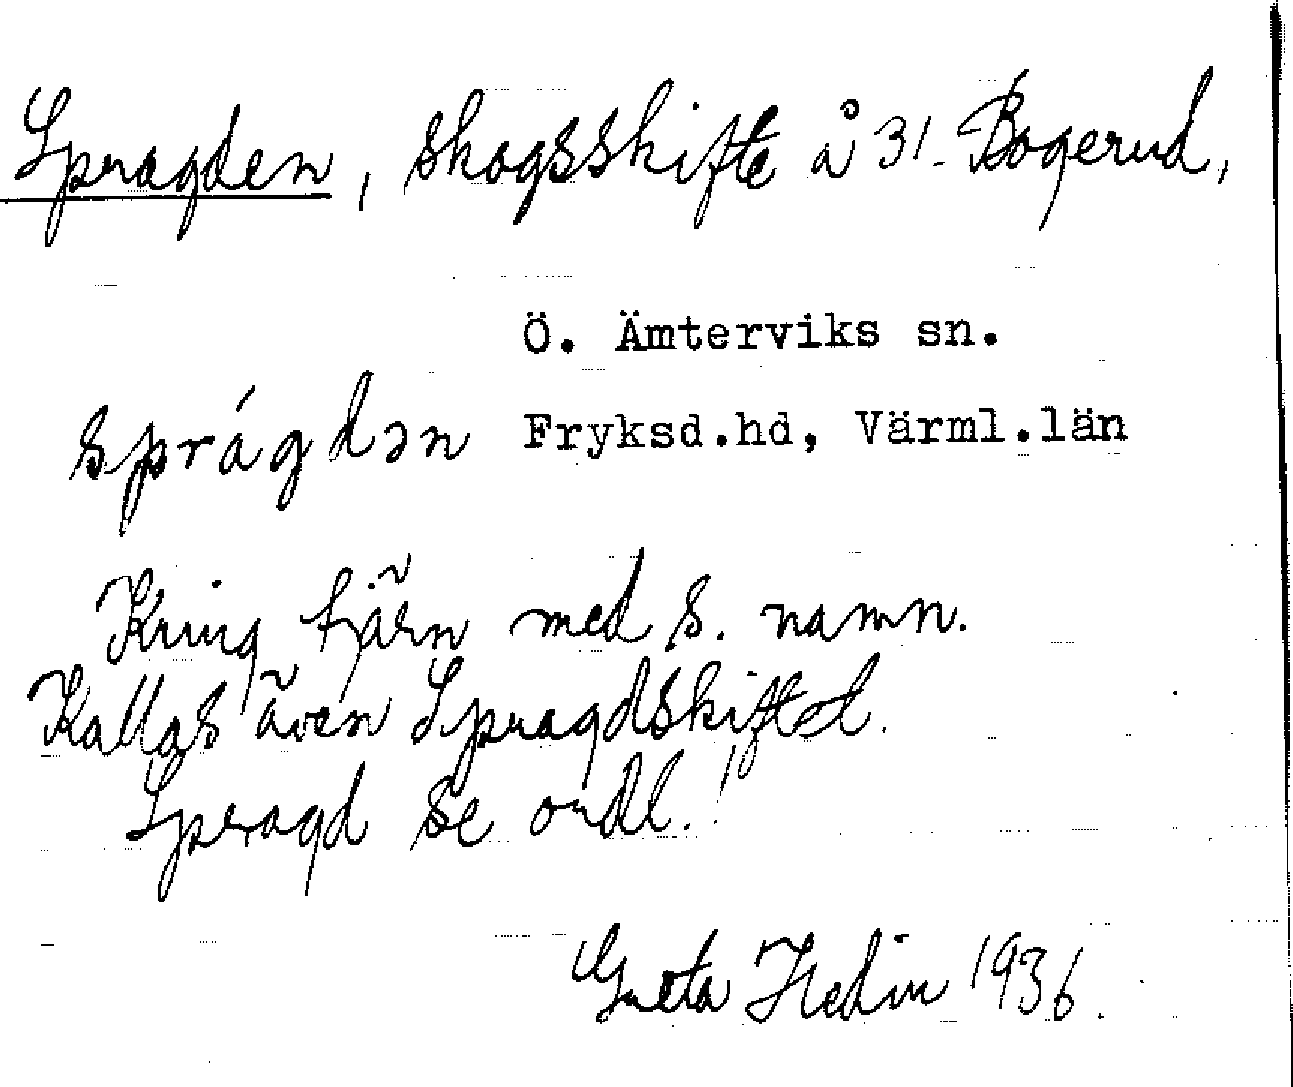 Spragden, skogsskifte å 31. Bogerud,
Ö. Ämterviks sn.
sprágdən Fryksd.hd, Värml.län
Kring tjärn med s. namn.
Kallas även Spragdskiftet.
Spragd se ordl.!
Greta Hedin 1936.